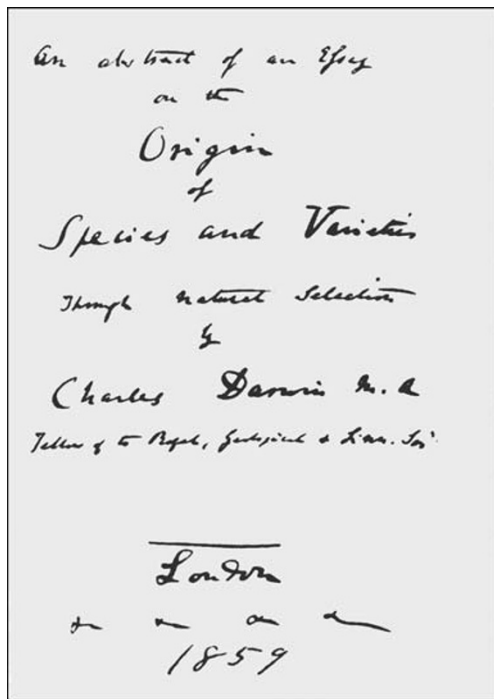 An abstract of an Essay
on the
Origin
of
Species and Varieties
Through natural Selection
by
Charles Darwin M.A
Fellow of the Royal, Geological & Linn. Soc.
London
1859